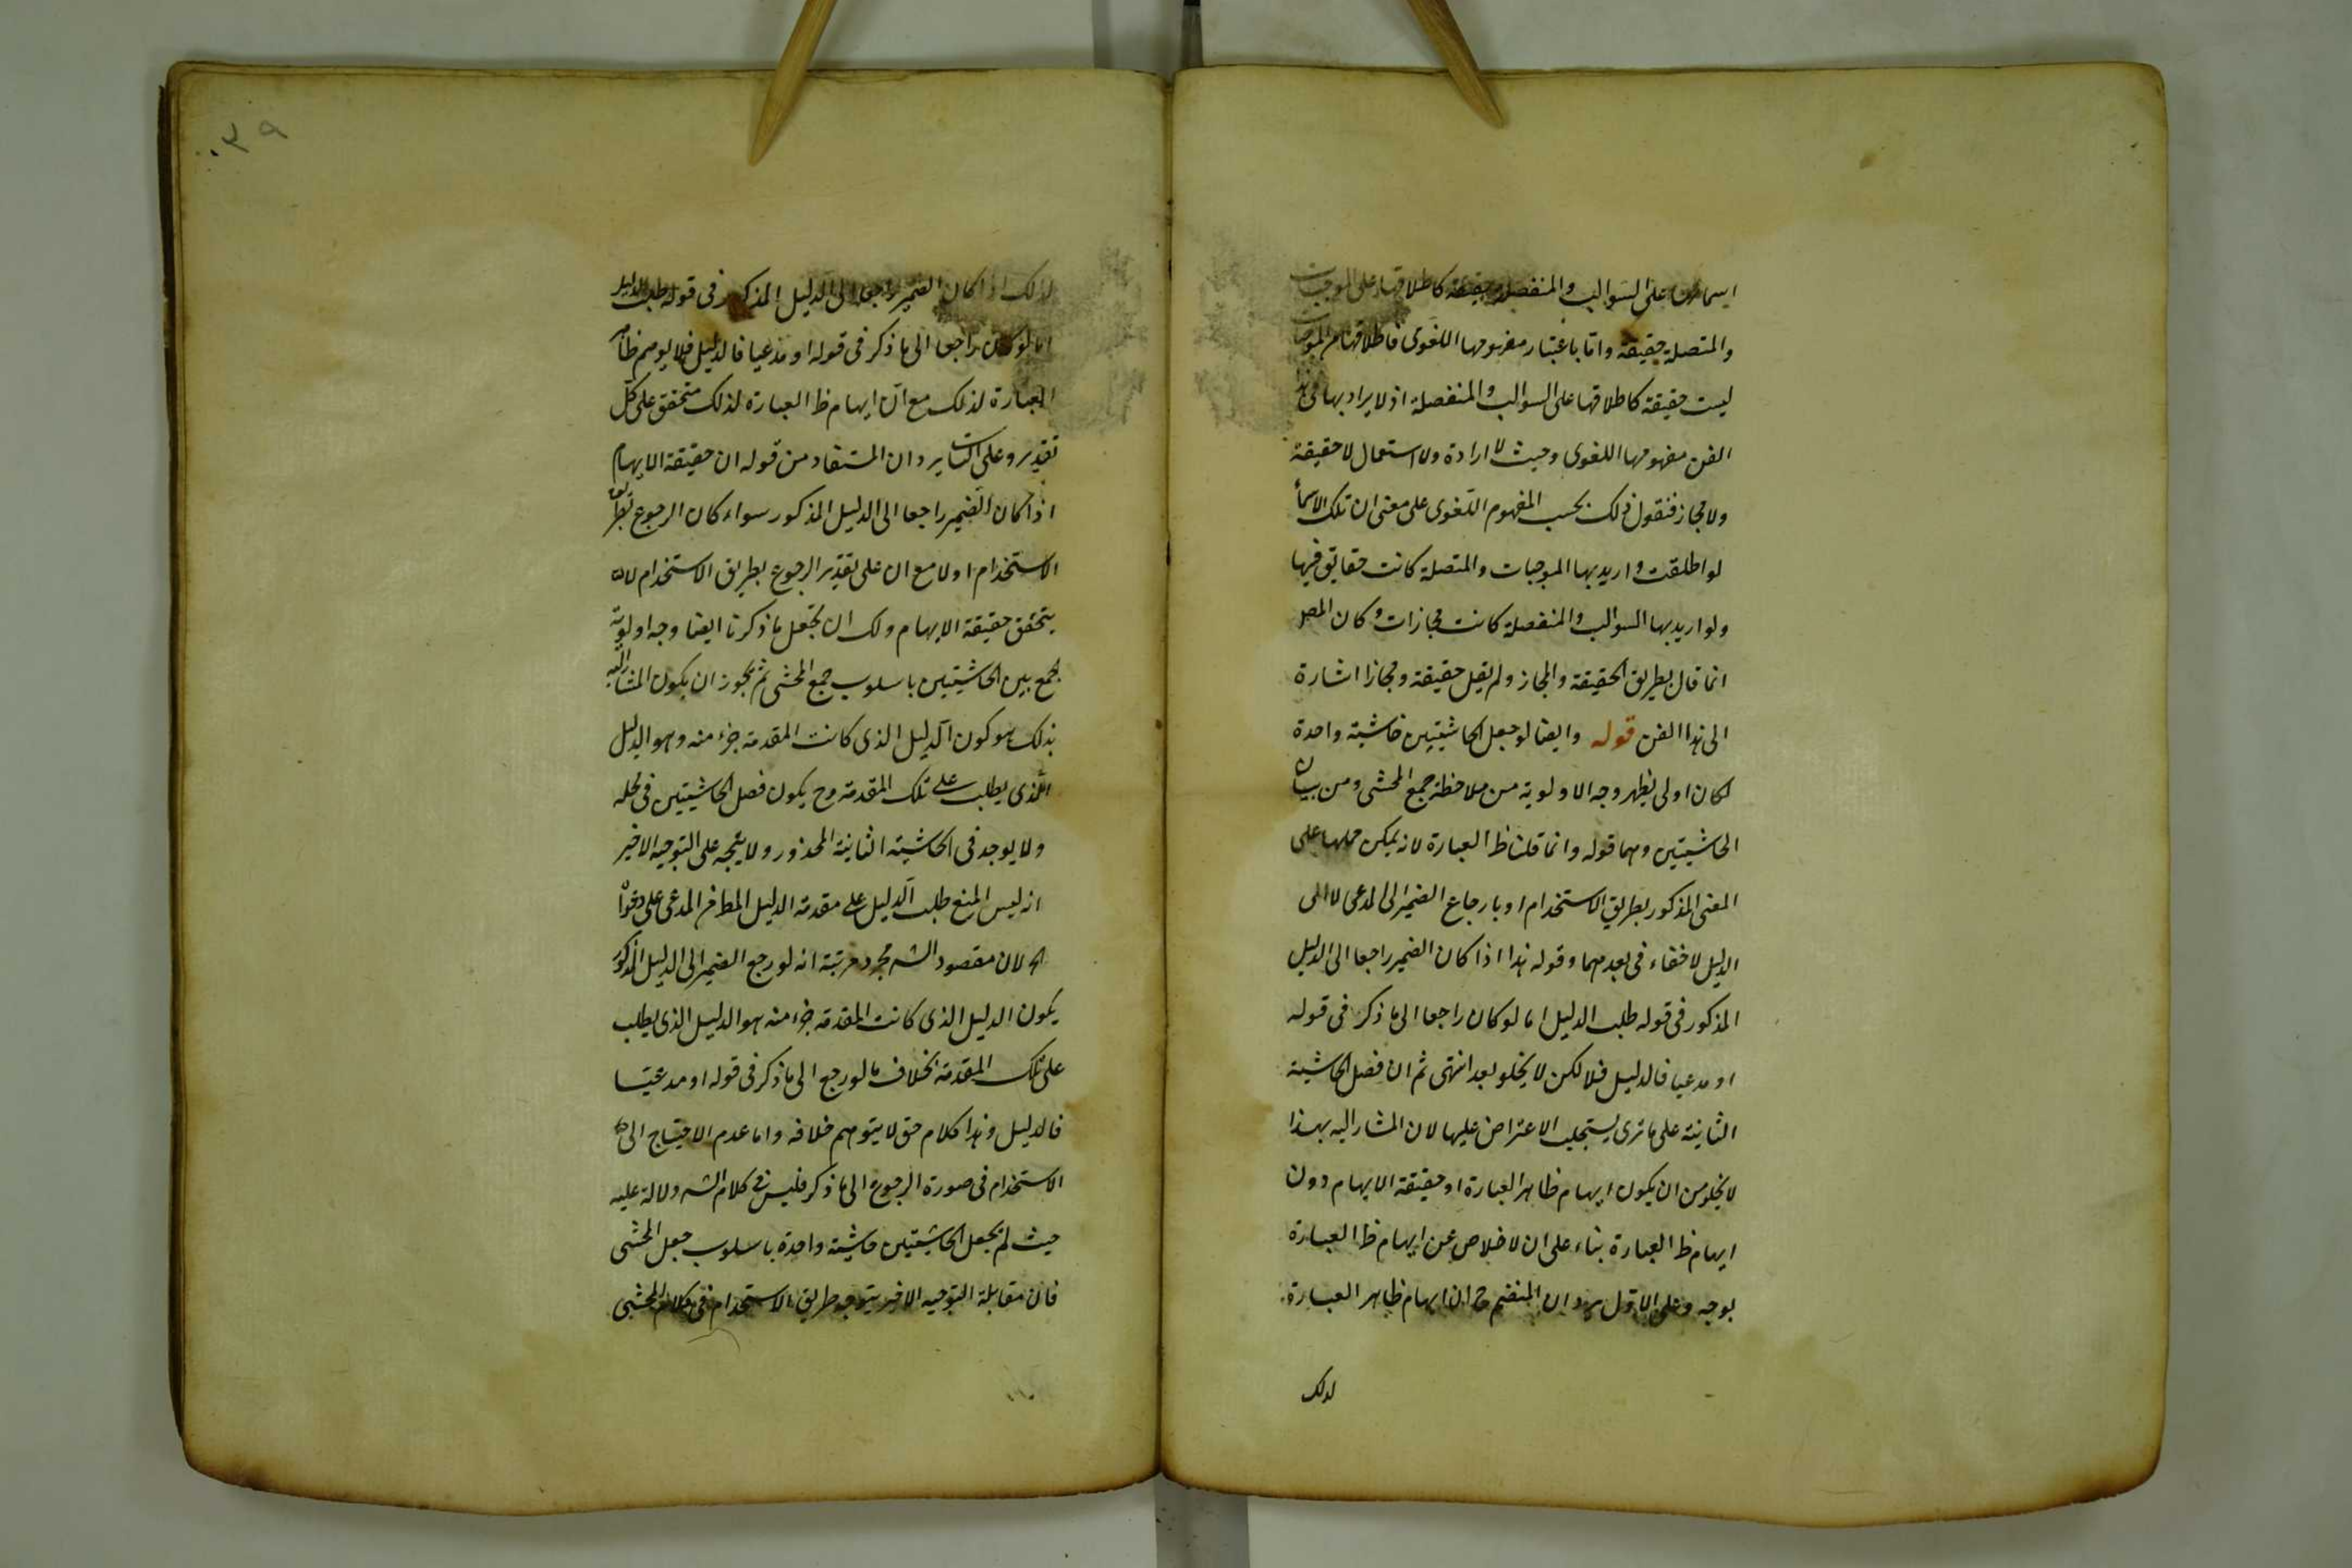 على السوالب والمنفصلة حقيقة كاطلاقها على الموجبات
والمتصلة حقيقة واما باعتبار مفهومها اللغوى فاطلاقها
ليست حقيقة كاطلاقها على السوالب والمنفصلة اذ لا يراد بها فى هذا
الفن مفهومها اللغوى وحيث لا ارادة ولا استعمال لا حقيقة
ولا مجاز فنقول ذلك بحسب المفهوم اللغوى على معنى ان تلك الاسماء
لو اطلقت واريد بها الموجبات والمتصلة كانت حقايق فيها
ولو اريد بها السوالب والمنفصلة كانت مجازات وكان المص
انما قال بطريق الحقيقة والمجاز ولم يقل حقيقة ومجازا اشارة
الى هذا الفن قوله وايضا لو جعل الحاشيتين حاشية واحدة
لكان اولى يظهر وجه الاولوية من ملاحظة جمع المحشى ومن بيان
الحاشيتين وهما قوله وانما قلنا ظ العبارة لانه يمكن حملها على
المعنى المذكور بطريق الاستخدام او بارجاع الضمير الى المدعى لا الى
الدليل لا خفاء فى بعدهما وقوله هذا اذا كان الضمير راجعا الى الدليل
المذكور فى قوله طلب الدليل اما لو كان راجعا الى ما ذكر فى قوله
او مدعيا فالدليل فلا لكن لا يخلو بعد انتهى ثم ان فصل الحاشية
الثانية على ما ترى يستجلب الاعتراض عليها لان المشار اليه بهذا
لا يخلو من ان يكون ايهام ظاهر العبارة او حقيقة الايهام دون
ايهام ظ العبارة بناء على ان لا خلاص عن ايهام ظ العبارة
بوجه وعلى الاول يرد ان المنفهم ح ان ايهام ظاهر العبارة
لذلك
٣٩
لذلك اذا كان الضمير راجعا الى الدليل المذكور فى قوله طلب الدليل
اما لو كان راجعا الى ما ذكر فى قوله او مدعيا فالدليل فلا يوهم ظاهر
العبارة لذلك مع ان ايهام ظ العبارة لذلك متحقق على كل
تقدير وعلى الثانى يرد ان المستفاد من قوله ان حقيقة الايهام
اذا كان الضمير راجعا الى الدليل المذكور سواء كان الرجوع بطريق
الاستخدام او لا مع ان على تقدير الرجوع بطريق الاستخدام لا
يتحقق حقيقة الايهام ولك ان تجعل ما ذكرنا ايضا وجه اولوية
جمع بين الحاشيتين باسلوب جمع المحشى ثم يجوز ان يكون المشار اليه
بذلك هو كون الدليل الذى كانت المقدمة جزء منه وهو الدليل
الذى يطلب على تلك المقدمة وح يكون فصل الحاشيتين فى محله
ولا يوجد فى الحاشية الثانية المحذور ولا يتجه على التوجيه الاخير
انه ليس المنع طلب الدليل على مقدمة الدليل المدعى على
لان مقصود الشه مجرد مرتبة انه لو رجع الضمير الى الدليل المذكور
يكون الدليل الذى كانت المقدمة جزء منه هو الدليل الذى يطلب
على تلك المقدمة بخلاف ما لو رجع الى ما ذكر فى قوله او مدعيا
فالدليل وهذا كلام حق لا يتوهم خلافه واما عدم الاحتياج الى
الاستخدام فى صورة الرجوع الى ما ذكر فليس فى كلام الشه دلالة عليه
حيث لم يجعل الحاشيتين حاشية واحدة باسلوب جعل المحشى
فان مقابلة التوجيه الاخير بتوجه طريق الاستخدام فى كلام المحشى